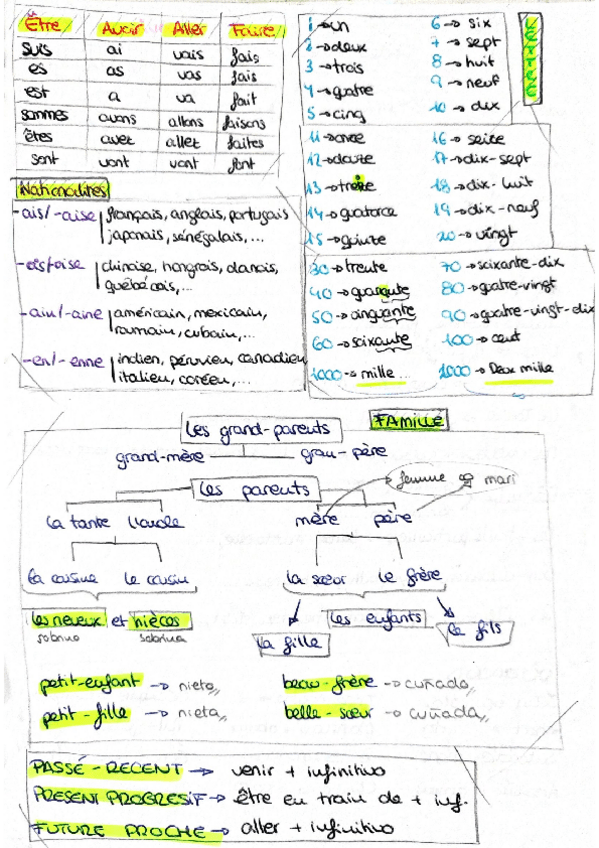 Être Avoir Aller Faire
suis ai vais fais
es as vas fais
est a va fait
sommes avons allons faisons
êtes avez allez faites
sont vont vont font
1 → un 6 → six
2 → deux 7 → sept
3 → trois 8 → huit
4 → quatre 9 → neuf
5 → cinq 10 → dix
11 → onze 16 → seize
12 → douze 17 → dix-sept
13 → treize 18 → dix-huit
14 → quatorce 19 → dix-neuf
15 → quinze 20 → vingt
30 → trente 70 → soixante-dix
40 → quarante 80 → quatre-vingt
50 → cinquante 90 → quatre-vingt-dix
60 → soixante 100 → cent
1000 → mille... 2000 → Deux mille
Nationalités
-ais/-aise français, anglais, portugais
japonais, sénégalais,...
-ois/oise chinoise, hongrais, danois,
québécois,...
-ain/-aine américain, mexicain,
roumain, cubain,...
-en/-enne indien, péruvien, canadien
italien, coréen,...
FAMILLE
Les grand-parents
grand-mère gran-père
Les parents femme mari
La tante L'oncle mère père
La cousine Le cousin La sœur Le frère
Les neveux et nièces Les enfants
sobrino sobrina La fille Le fils
petit-enfant → nieto,, beau-frère → cuñado,,
petit-fille → nieta,, belle-sœur → cuñada,,
PASSÉ-RECENT → venir + infinitivo
PRESENT PROGRESIF → être en train de + inf.
FUTURE PROCHE → aller + infinitivo